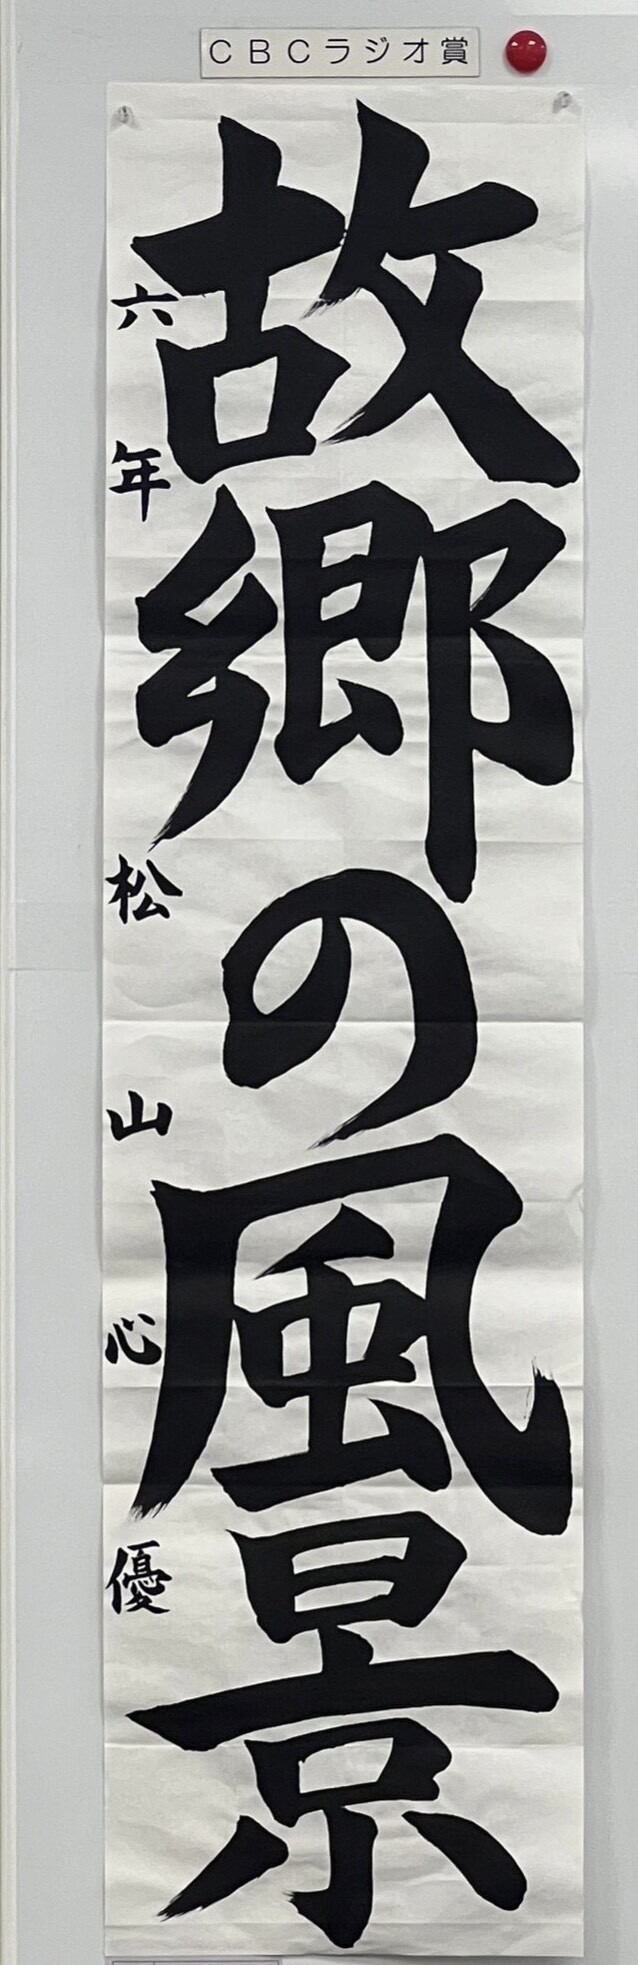 CBCラジオ賞
故郷の風景
六年 松山心優